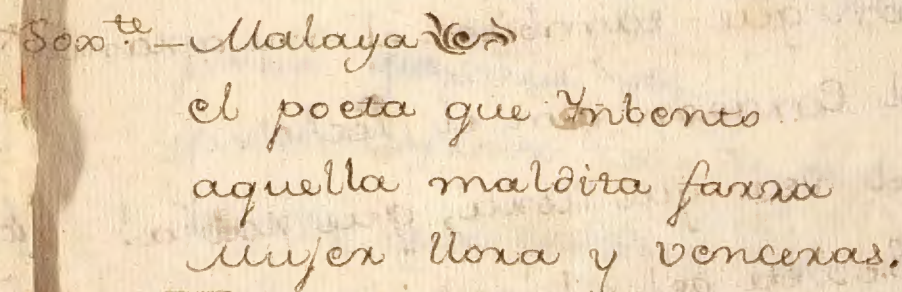 Sorte - Malaya
el poeta que Inbento
aquella maldita farra
Mujer llora y venceras.